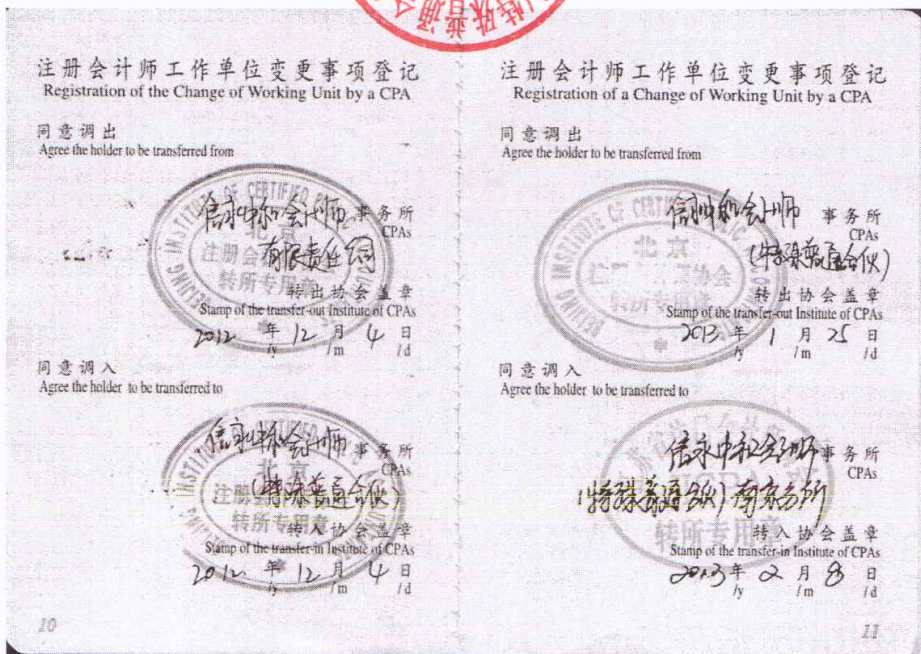 特殊普通合
注册会计师工作单位变更事项登记
Registration of the Change of Working Unit by a CPA
同意调出
Agree the holder to be transferred from
信永中和会计师 事务所
CPAs
有限责任公司
转出协会盖章
Stamp of the transfer-out Institute of CPAs
2012 年 12 月 4 日
/y /m /d
同意调入
Agree the holder to be transferred to
信永中和会计师 事务所
CPAs
(特殊普通合伙)
转入协会盖章
Stamp of the transfer-in Institute of CPAs
2012 年 12 月 4 日
/y /m /d
10
注册会计师工作单位变更事项登记
Registration of a Change of Working Unit by a CPA
同意调出
Agree the holder to be transferred from
信永中和会计师 事务所
CPAs
(特殊普通合伙)
转出协会盖章
Stamp of the transfer-out Institute of CPAs
2013 年 1 月 25 日
/y /m /d
同意调入
Agree the holder to be transferred to
信永中和会计师 事务所
CPAs
(特殊普通合伙) 南京分所
转入协会盖章
Stamp of the transfer-in Institute of CPAs
2013 年 2 月 8 日
/y /m /d
11
北京
转所专用章